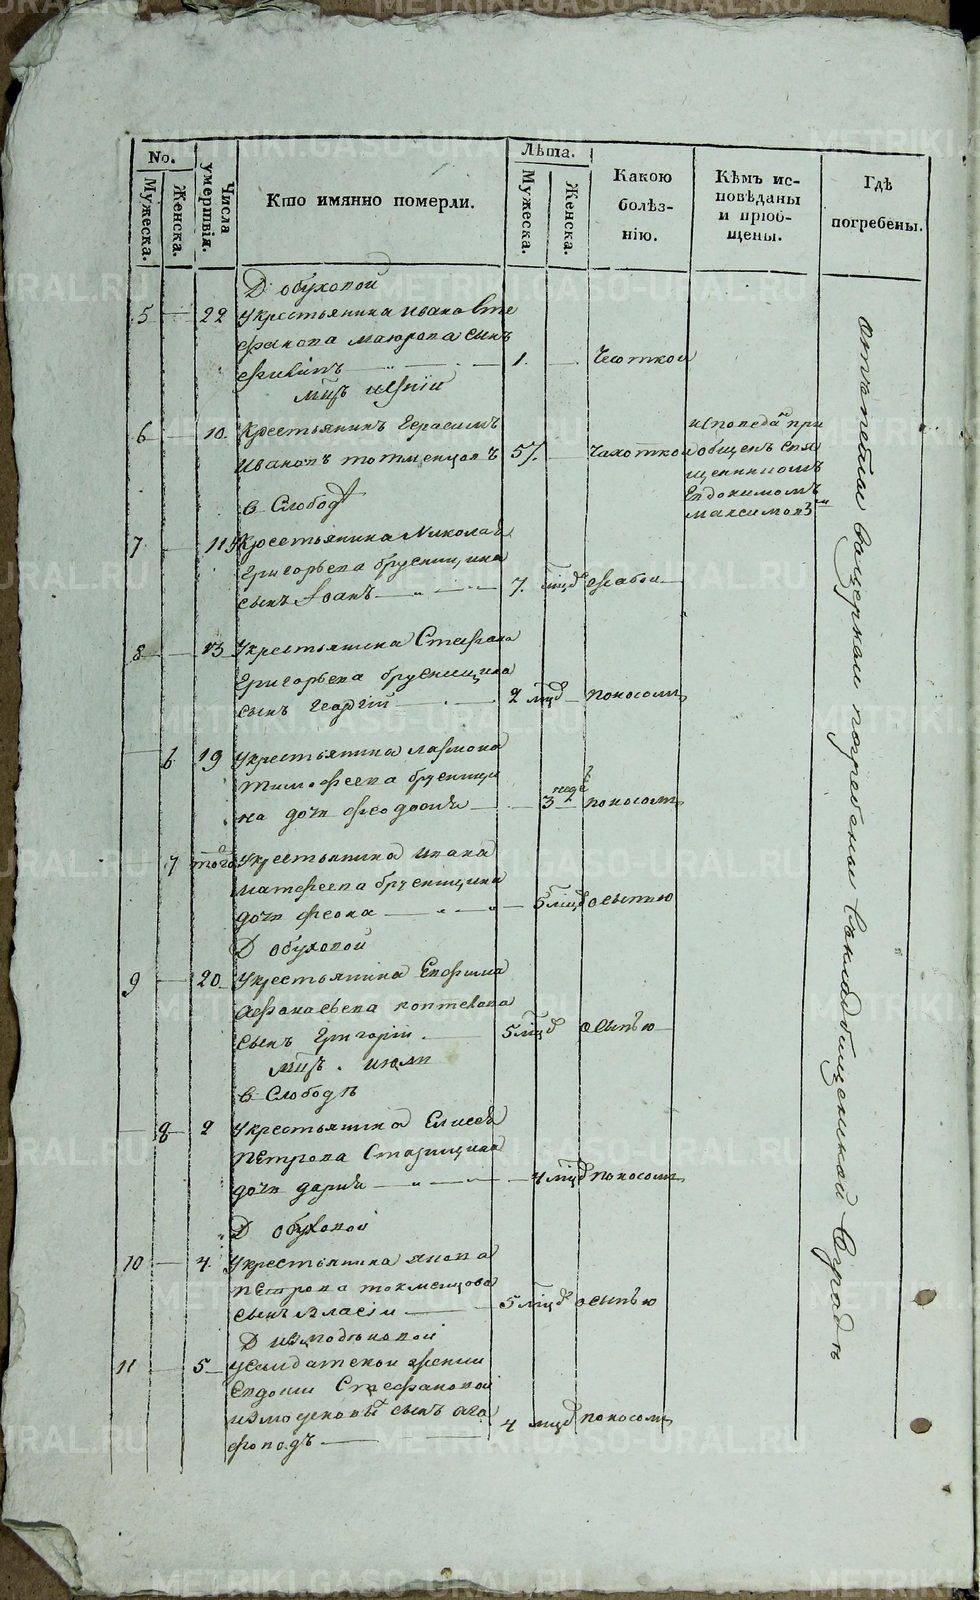 No.
Мужеска.
Женска.
Числа умершвія.
Кто имянно померли.
Лѣта.
Мужеска.
Женска.
Какою болѣз-
нію.
Кѣмъ ис-
повѣданы
и пріоб-
щены.
Гдѣ
погребены.
Д обуховой
5 22 У крестьянина ивана Сте
фанова маюрова сынъ
1. Чесоткой
мцъ
6 10 Крестьянинъ Герасимъ
Ивановъ тотменцовъ 57. Чахоткой
исповеда при
общенъ свя
щенникомъ
Евдокимомъ
максимов
в Слобод
7 11 У Крестьянина Николая
Григорьева брусницина
сынъ Іоанъ 7. мцд
8 13 У крестьянина Стефана
Григорьева брусницина
сынъ Георгій 2 мцд поносомъ
6 19 У крестьянина лариона
Тимофеева брусници
на дочь феодосия 3 неде поносомъ
7 того У крестьянина ивана
матфеева брусницина
дочь 5 мцд осыпию
Д обуховой
9 20 У крестьянина Ефима
Афанасьева коптелова
сынъ Григорій 5 мцд осыпью
мцъ июли
в Слободѣ
8 2 У крестьянина Елисея
Петрова Старицина
дочь дария 4 мцд поносомъ
Д обуховой
10 4 У крестьянина
Петрова токменцова
сынъ Власій 5 мцд осыпью
Д измоденовой
11 5 У салдатской жены
Евдокии Стефановой
измоденовы сынъ ага
фоподъ 4 мцд поносомъ
отпеваны в церкви погребены в кладбищенской ограде
METRIKI.GASO-URAL.RU